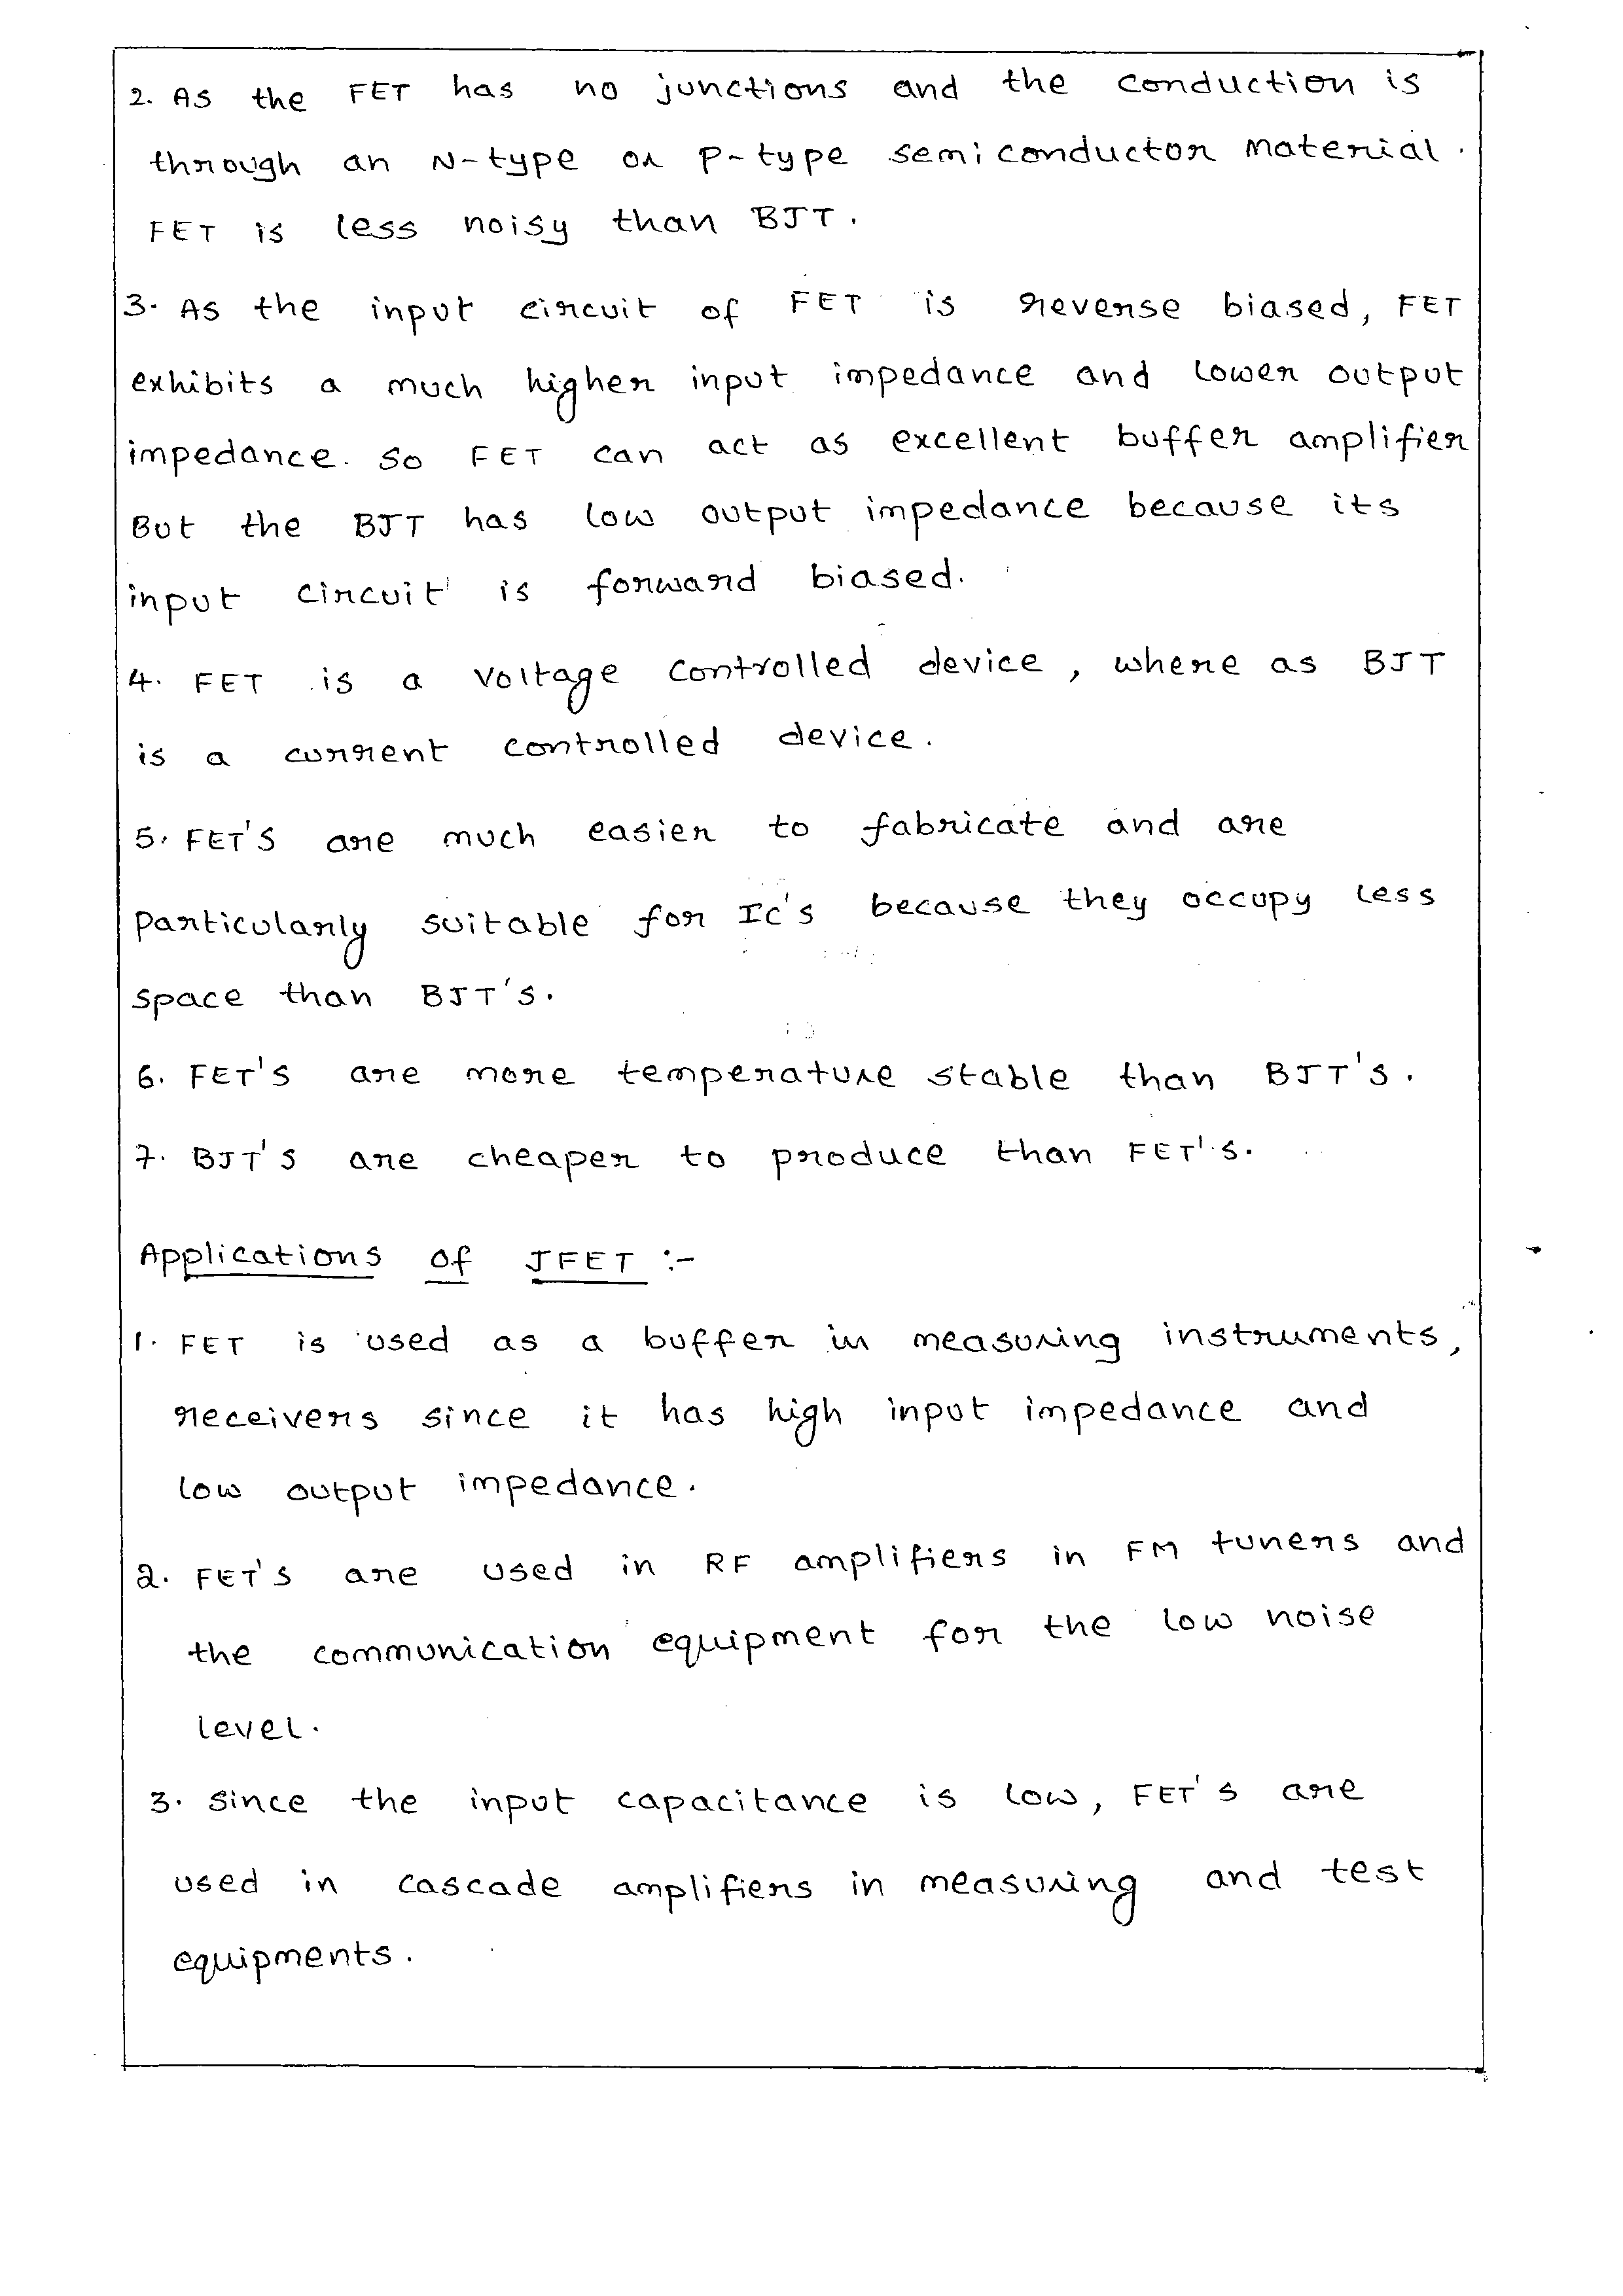 2. As the FET has no junctions and the conduction is
through an N-type or P-type semiconductor material.
FET is less noisy than BJT.
3. As the input circuit of FET is reverse biased, FET
exhibits a much higher input impedance and lower output
impedance. So FET can act as excellent buffer amplifier
But the BJT has low output impedance because its
input circuit is forward biased.
4. FET is a voltage controlled device, where as BJT
is a current controlled device.
5. FET's are much easier to fabricate and are
particularly suitable for IC's because they occupy less
space than BJT's.
6. FET's are more temperature stable than BJT's.
7. BJT's are cheaper to produce than FET's.
Applications of JFET :-
1. FET is used as a buffer in measuring instruments,
receivers since it has high input impedance and
low output impedance.
2. FET's are used in RF amplifiers in FM tuners and
the communication equipment for the low noise
level.
3. Since the input capacitance is low, FET's are
used in cascade amplifiers in measuring and test
equipments.